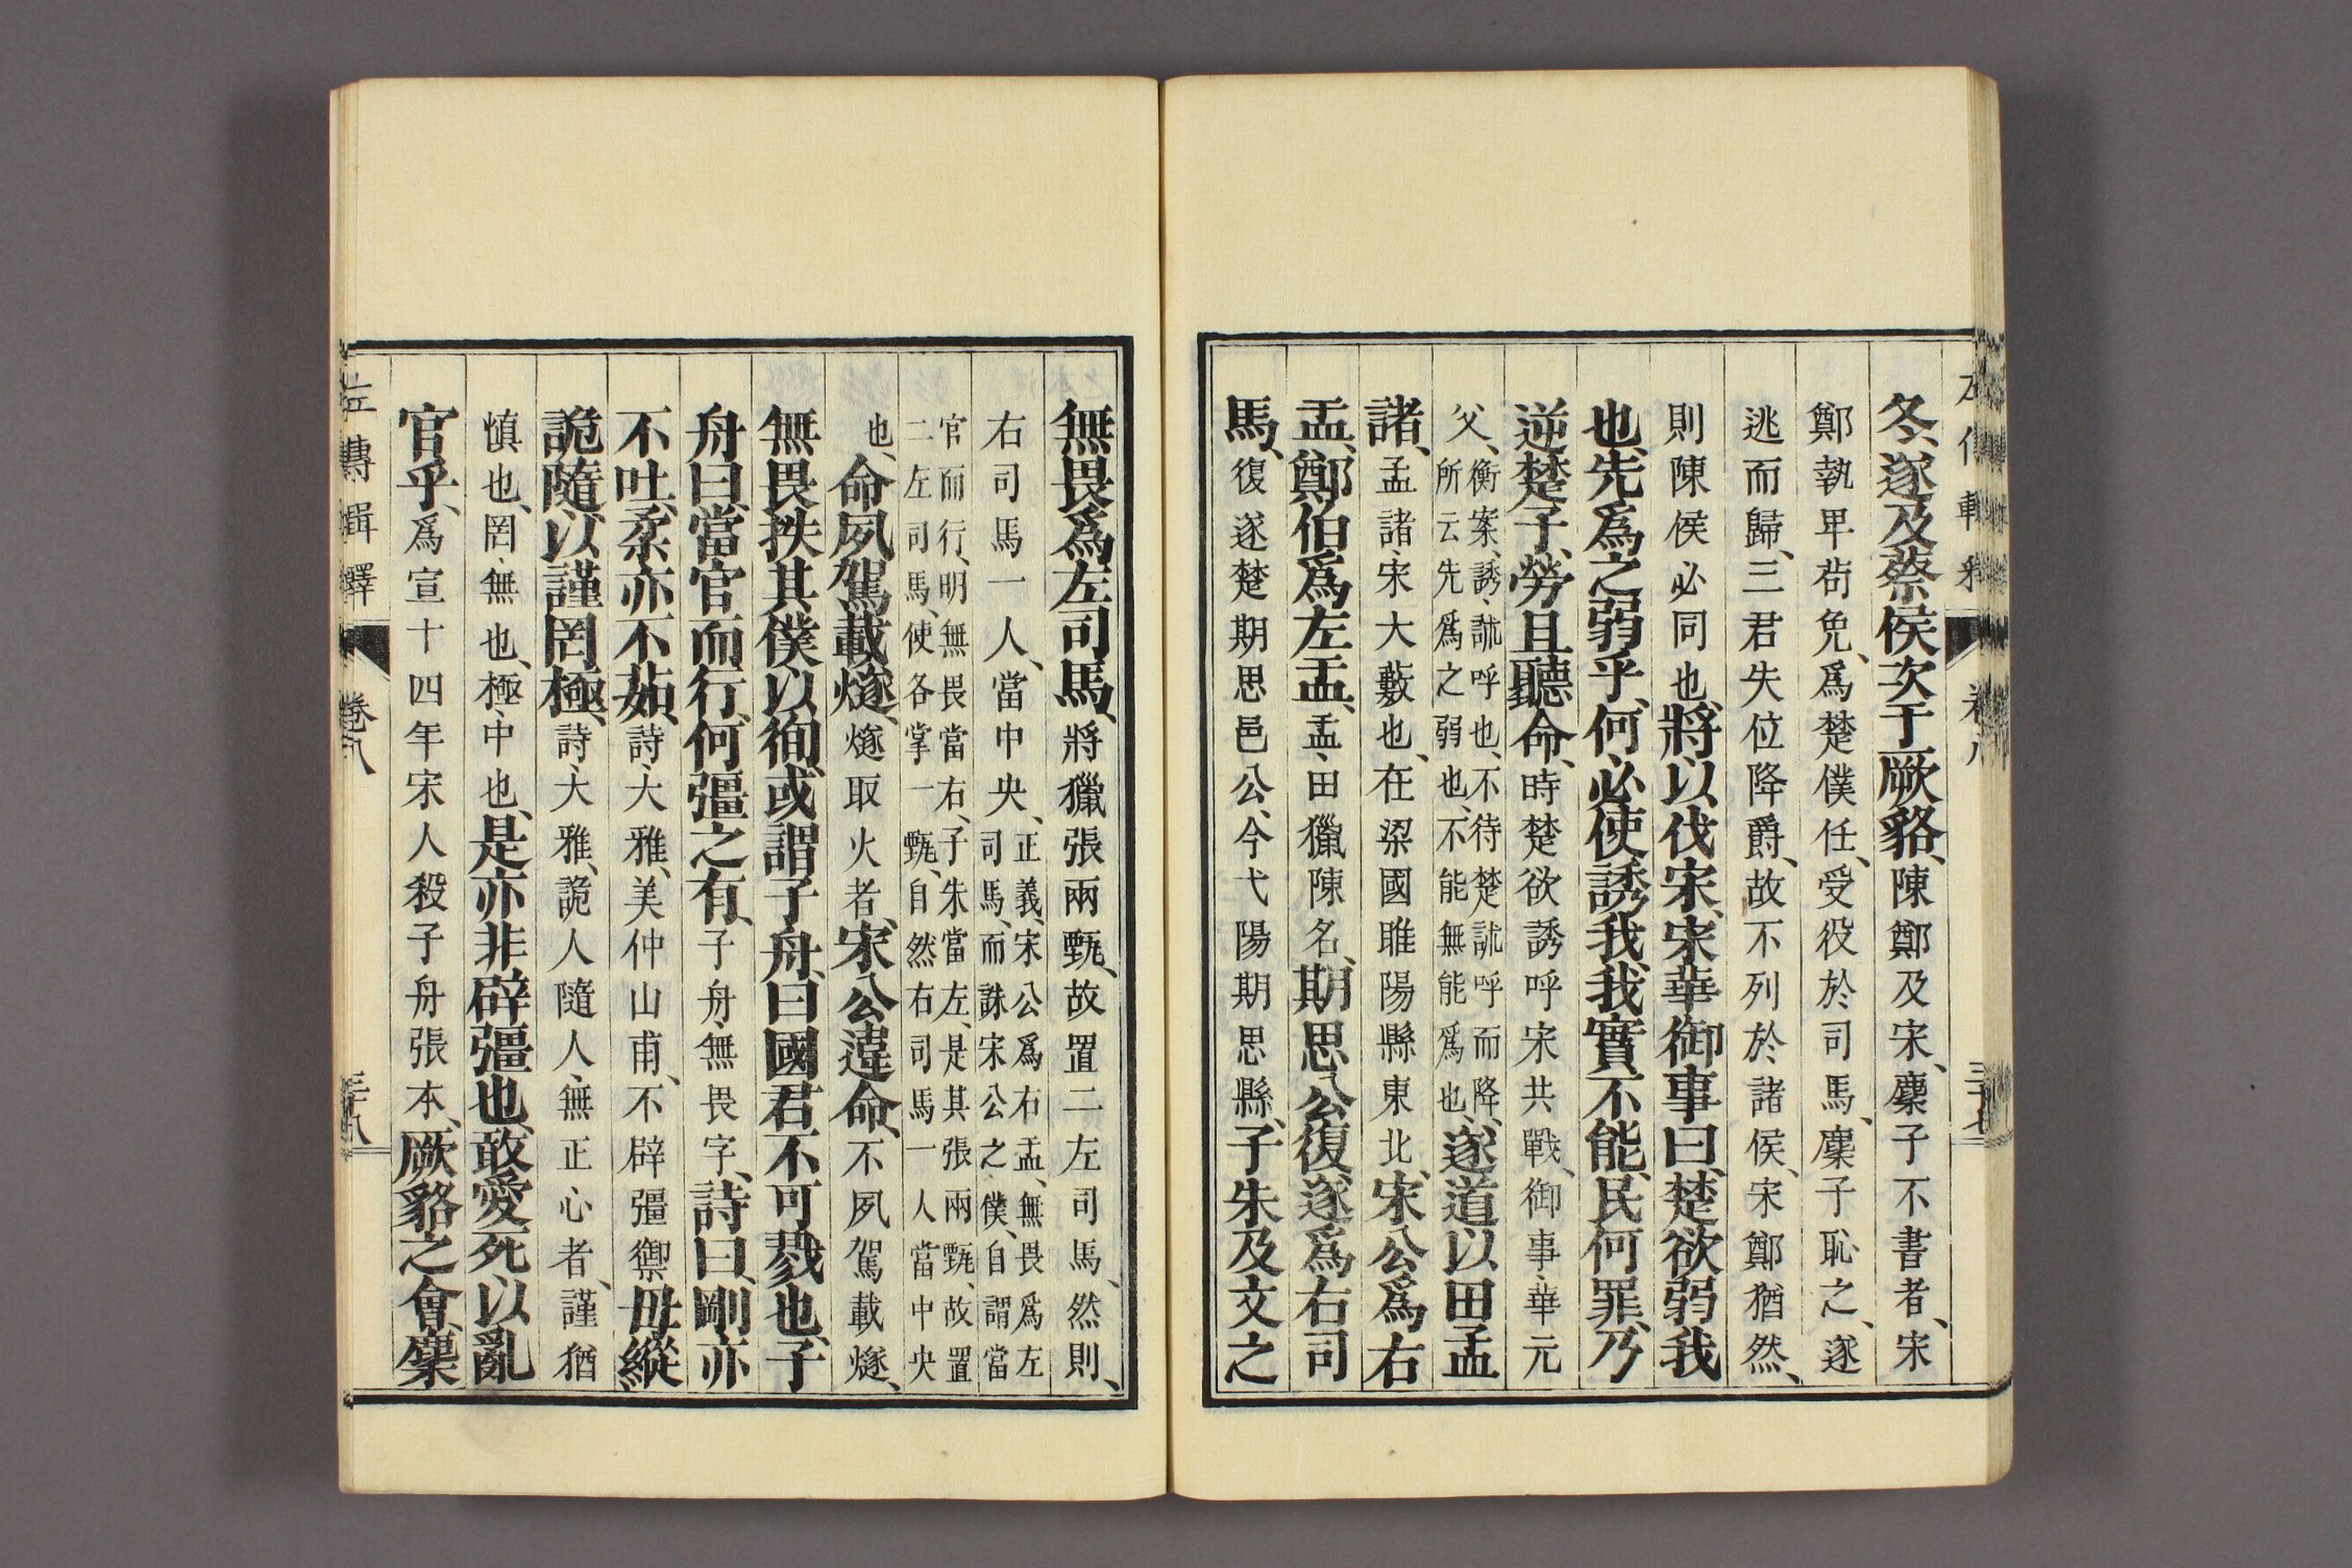 冬、遂及蔡侯次于厥貉、陳鄭及宋、麇子不書者、宋
鄭執卑苟免、爲楚僕任、受役於司馬、麇子恥之、遂
逃而歸、三君失位降爵、故不列於諸侯、宋鄭猶然、
則陳侯必同也、將以伐宋、宋華御事曰、楚欲弱我
也、先爲之弱乎、何必使誘我、我實不能、民何罪、乃
逆楚子、勞且聽命、時楚欲誘呼宋共戰、御事、華元
父、衡案、誘、訹呼也、不待楚訹呼而降、
所云先爲之弱也、不能無能爲也、遂道以田孟
諸、孟諸、宋大藪也、在梁國睢陽縣東北、宋公爲右
盂、鄭伯爲左盂、盂、田獵陳名、期思公復遂爲右司
馬、復遂楚期思邑公、今弋陽期思縣、子朱及文之
無畏爲左司馬、將獵張兩甄、故置二左司馬、然則、
右司馬一人、當中央、正義、宋公爲右盂、無畏爲左
司馬、而誅宋公之僕、自謂當
官而行、明無畏當右、子朱當左、是其張兩甄、故置
二左司馬、使各掌一甄、自然右司馬一人當中央
也、命夙駕載燧、燧取火者、宋公違命、不夙駕載燧、
無畏抶其僕以徇、或謂子舟曰、國君不可戮也、子
舟曰、當官而行、何彊之有、子舟、無畏字、詩曰、剛亦
不吐、柔亦不茹、詩、大雅、美仲山甫、不辟彊禦、毋縱
詭隨、以謹罔極、詩、大雅、詭人隨人、無正心者、謹猶
慎也、罔、無也、極、中也、是亦非辟彊也、敢愛死以亂
官乎、爲宣十四年宋人殺子舟張本、厥貉之會、麇
左傳輯釋 卷八 三十八